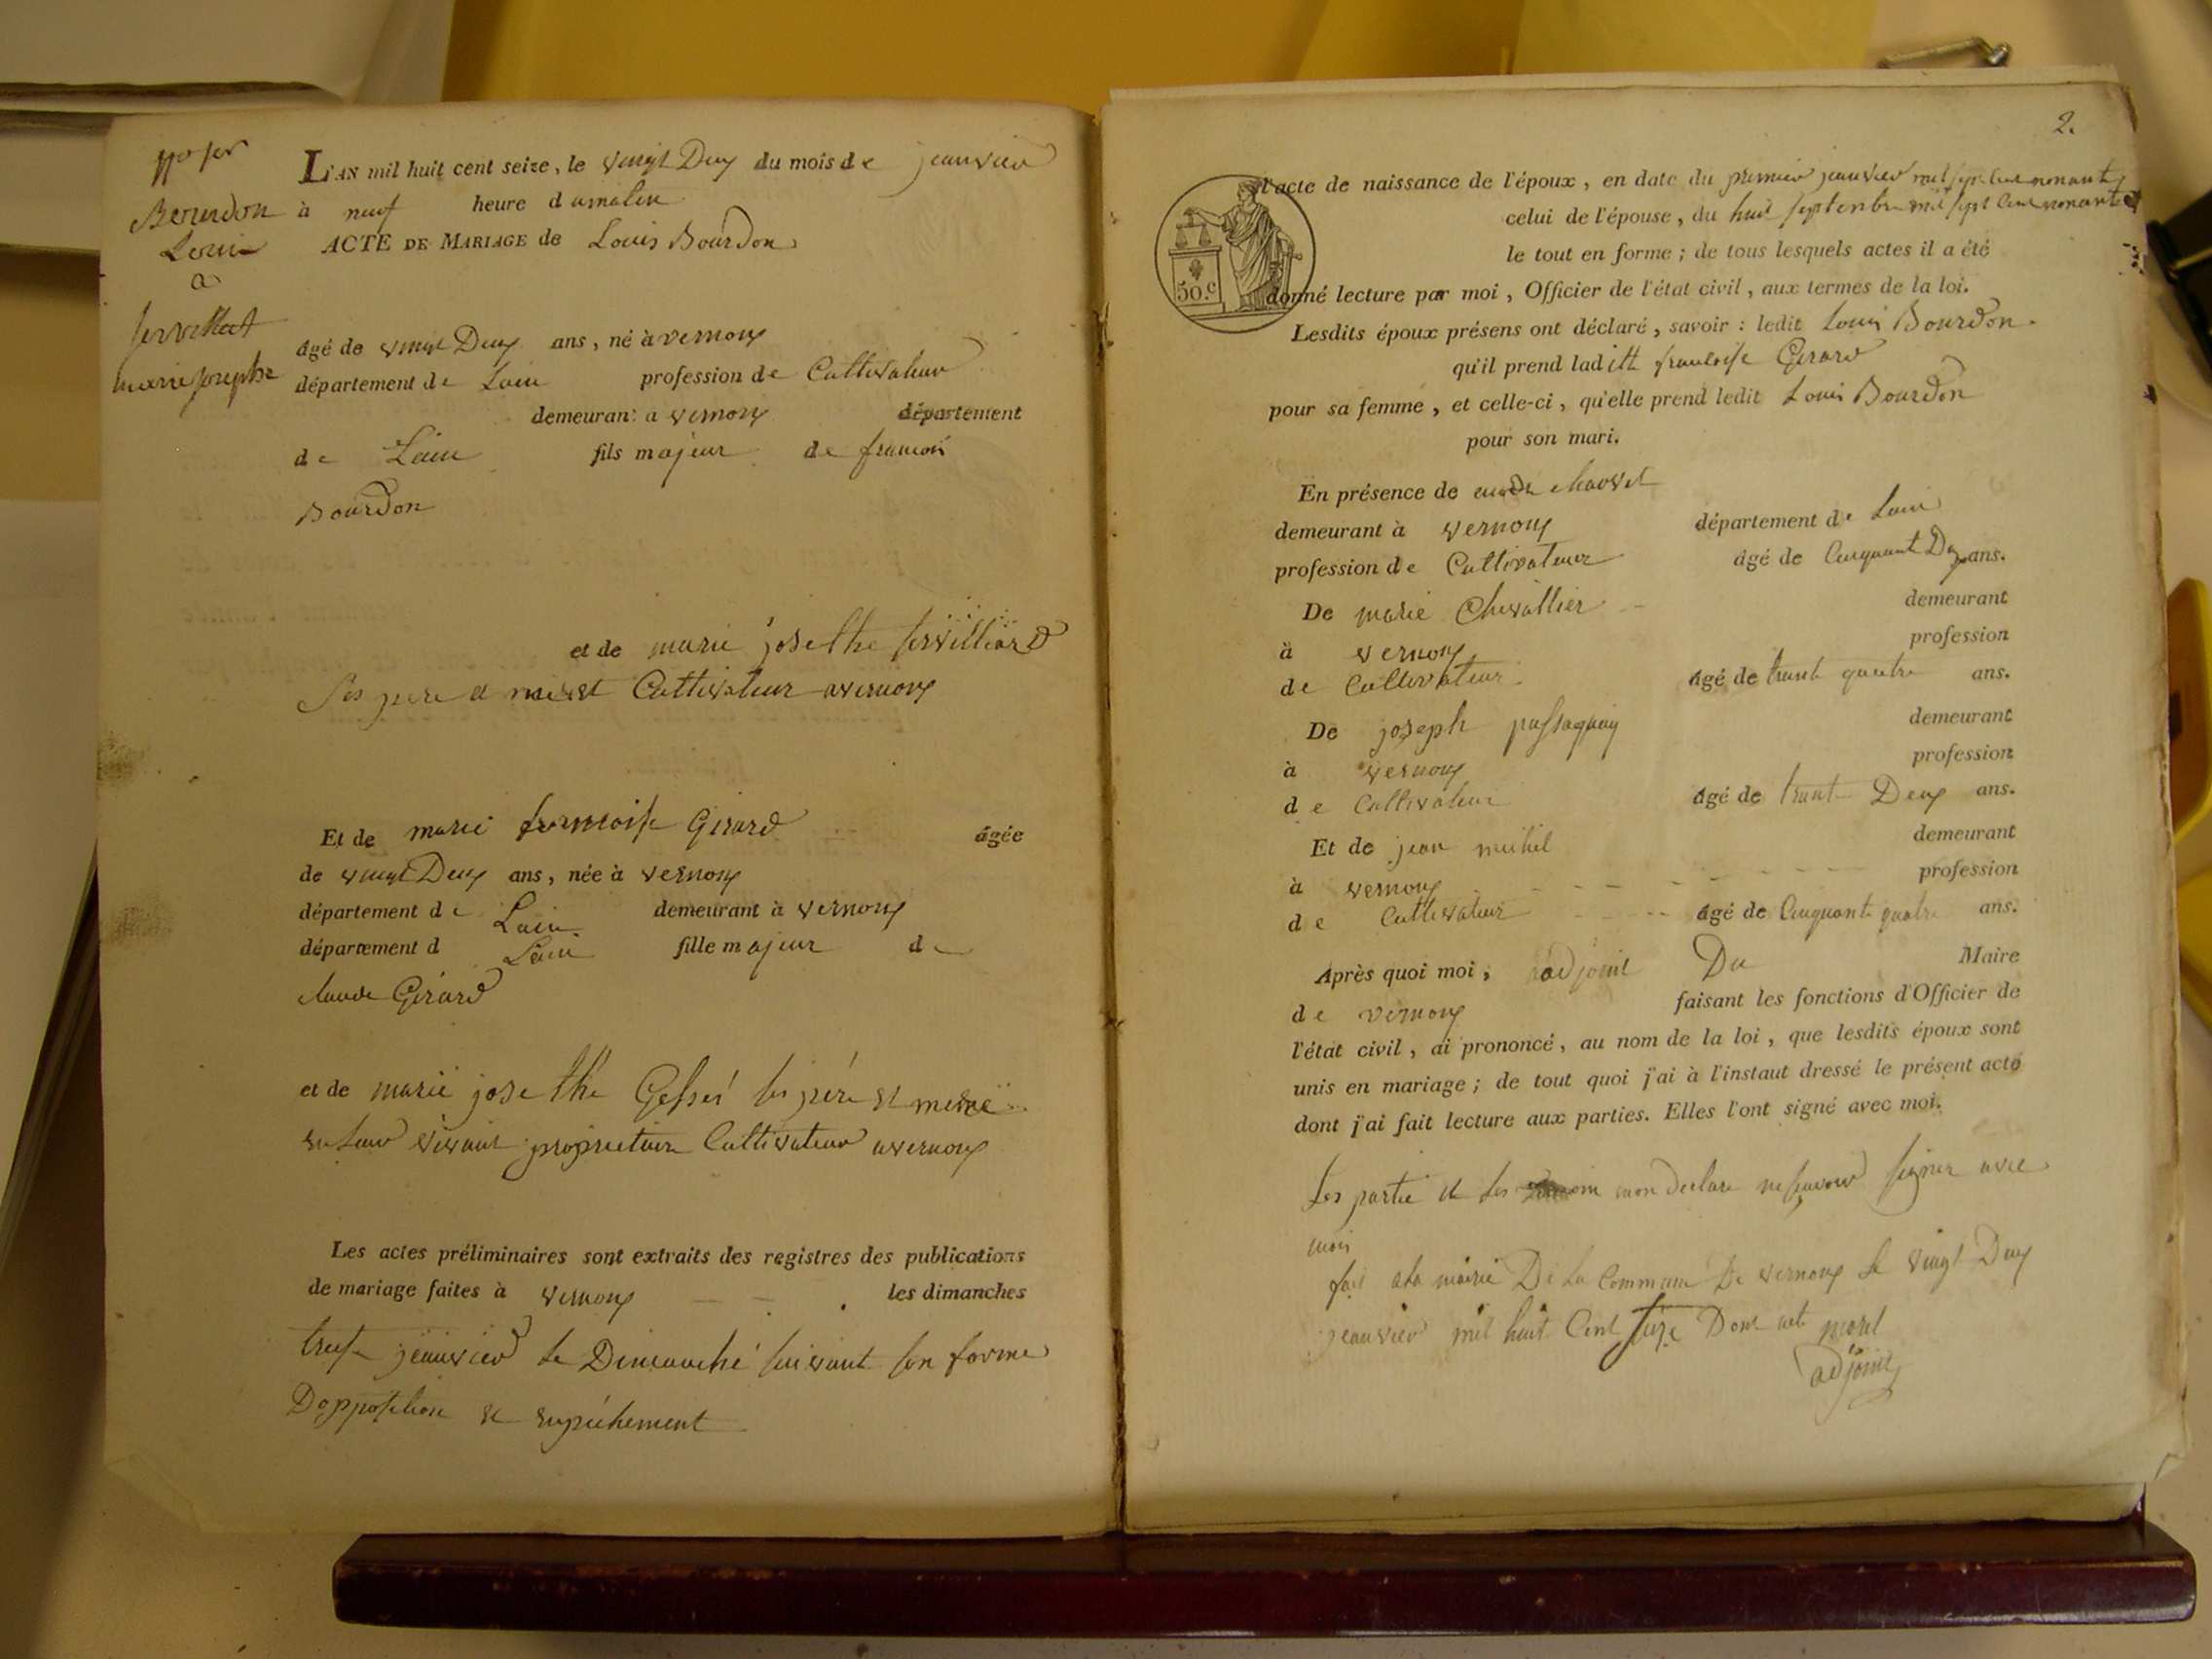 Bourdon
Louis
a
marie josephe
L'AN mil huit cent seize, le vingt Deux du mois de jeanvier
à neuf heure d amatin
ACTE DE MARIAGE de Louis Bourdon
âgé de vingt Deux ans, né à vernoux
département de Lain profession de Cultivateur
demeurant a vernoux département
de Lain fils majeur de francois
Bourdon
et de marie josethe servilliard
ses pere et mere Cultivateur avernoux
Et de marie francoise Girard âgée
de vingt Deux ans, née à vernoux
département de Lain demeurant à vernoux
département d Lain fille majeur de
claude Girard
et de marie josethe ses pére et mere
vivant proprietaire Cultivateur avernoux
Les actes préliminaires sont extraits des registres des publications
de mariage faites à vernoux les dimanches
jeanvier le Dimanche suivant son forme
Dopposition et enpéchement
2.
50.c
l'acte de naissance de l'époux, en date du premier jeanvier mil sept cent nonante
celui de l'épouse, du huit septenbre mil sept cent nonante
le tout en forme; de tous lesquels actes il a été
donné lecture par moi, Officier de l'état civil, aux termes de la loi.
Lesdits époux présens ont déclaré, savoir: ledit Louis Bourdon
qu'il prend laditt francoise Girard
pour sa femme, et celle-ci, qu'elle prend ledit Louis Bourdon
pour son mari.
En présence de chauvet
demeurant à vernoux département de Lain
profession de Cultivateur âgé de Cinquante Deux ans.
De marie Chevallier demeurant
à vernoux profession
de Cultivateur âgé de trente quatre ans.
De joseph passaquay demeurant
à vernoux profession
de Cultivateur âgé de trante Deux ans.
Et de jean michel demeurant
à vernoux profession
de Cultivateur âgé de Cinquante quatre ans.
Après quoi moi, adjoint Du Maire
de vernoux faisant les fonctions d'Officier de
l'état civil, ai prononcé, au nom de la loi, que lesdits époux sont
unis en mariage; de tout quoi j'ai à l'instaut dressé le présent acte
dont j'ai fait lecture aux parties. Elles l'ont signé avec moi.
Les partie et les mon declare ne savoir signer avec
moi
fait ala mairie De La Commune De vernoux le vingt Deux
jeanvier mil huit Cent seize Dont acte morel
adjoint